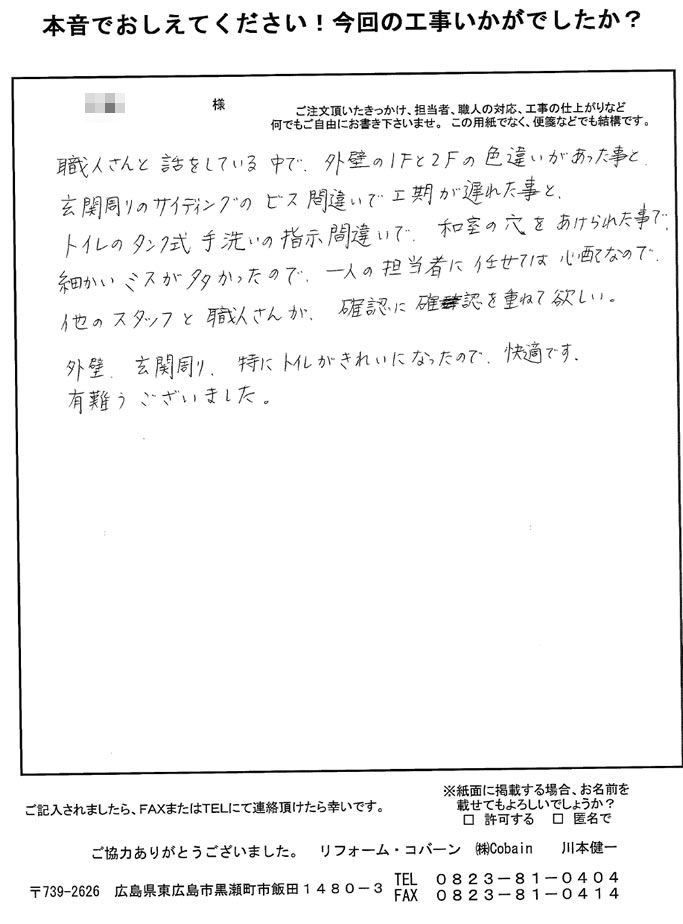 本音でおしえてください！今回の工事いかがでしたか？
様
ご注文頂いたきっかけ、担当者、職人の対応、工事の仕上がりなど
何でもご自由にお書き下さいませ。この用紙でなく、便箋などでも結構です。
職人さんと話をしている中で、外壁の1Fと2Fの色違いがあった事と、
玄関周りのサイディングのビス間違いで工期が遅れた事と、
トイレのタンク式手洗いの指示間違いで、和室の穴をあけられた事で、
細かいミスが多かったので、一人の担当者に任せては心配なので、
他のスタッフと職人さんが、確認に確認を重ねて欲しい。
外壁、玄関周り、特にトイレがきれいになったので、快適です。
有難うございました。
ご記入されましたら、FAXまたはTELにて連絡頂けたら幸いです。
※紙面に掲載する場合、お名前を
載せてもよろしいでしょうか？
□ 許可する □ 匿名で
ご協力ありがとうございました。 リフォーム・コバーン ㈱Cobain 川本健一
〒739-2626 広島県東広島市黒瀬町市飯田１４８０－３
TEL ０８２３－８１－０４０４
FAX ０８２３－８１－０４１４